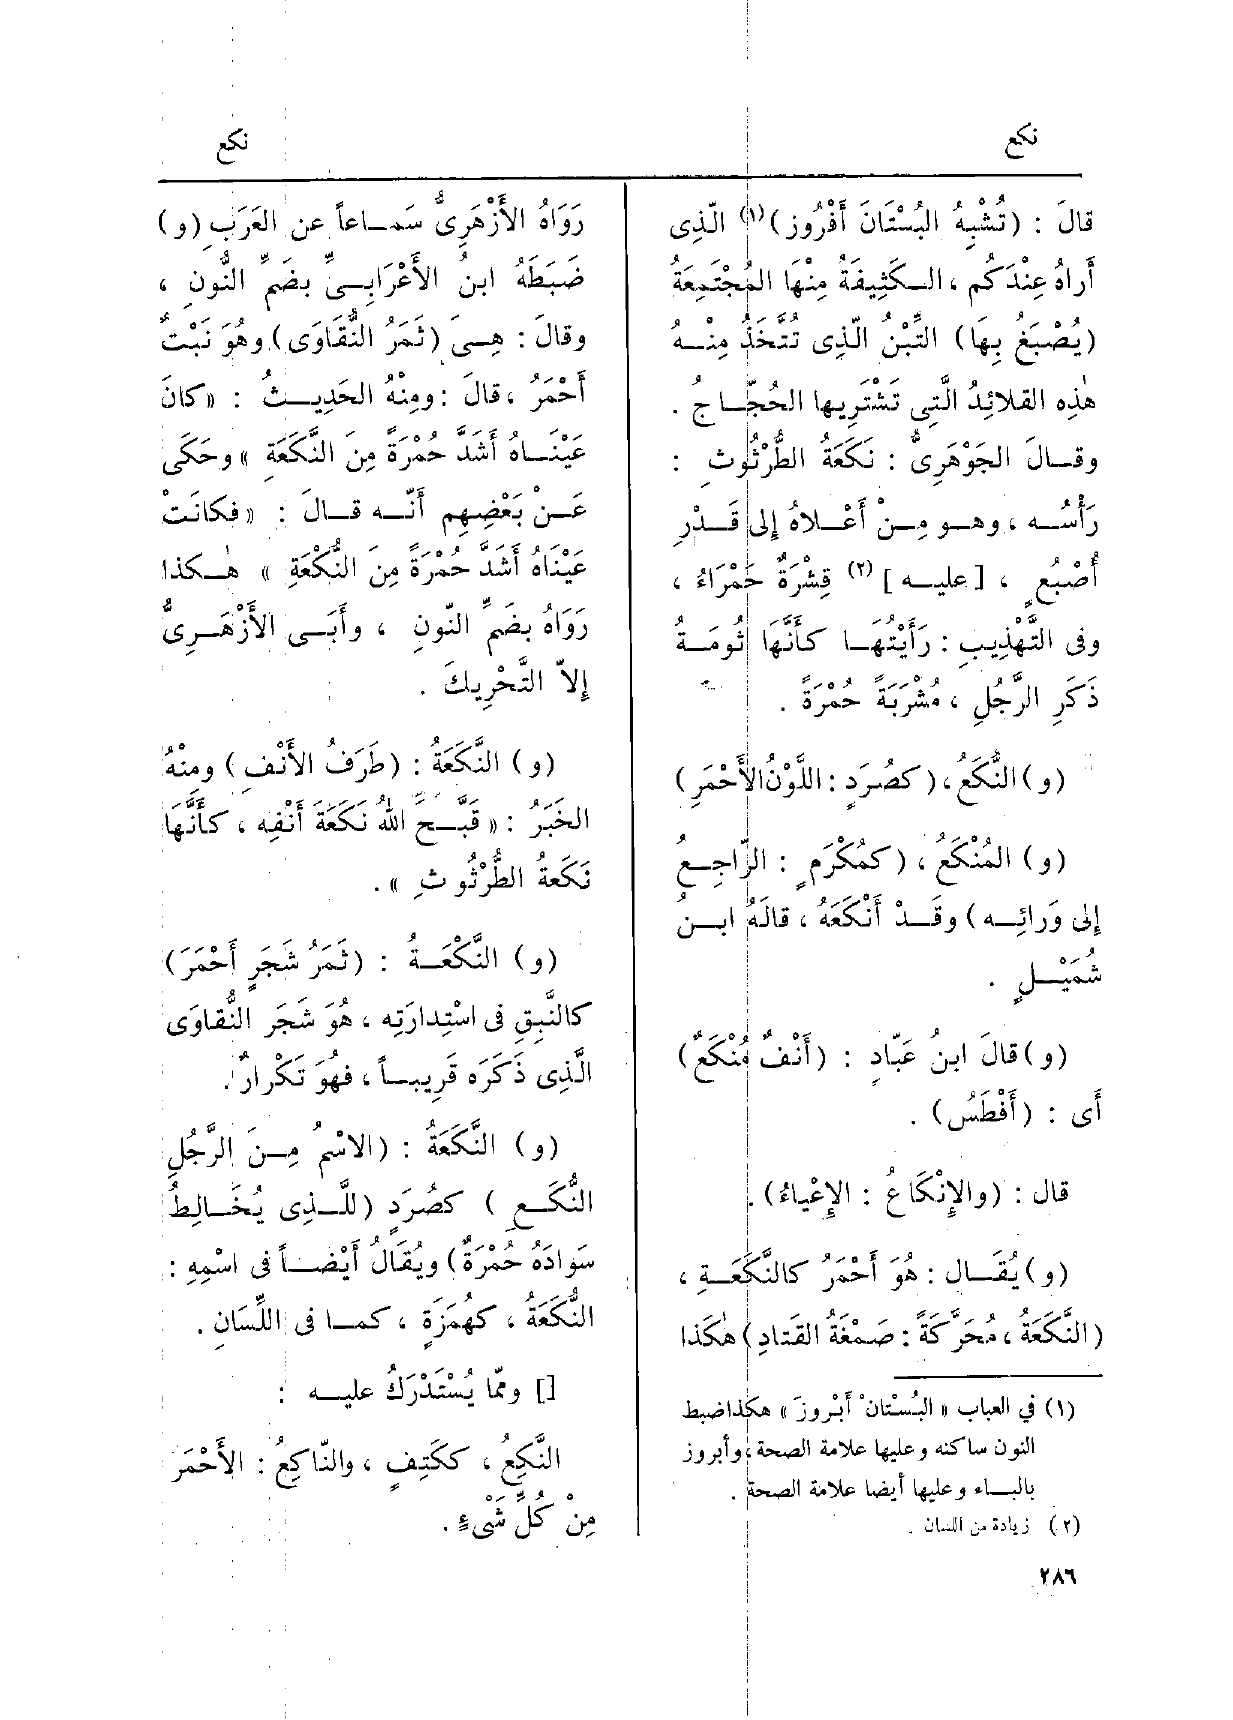 نكع
نكع
قالَ : (تُشْبِهُ البُسْتَانَ أَفْرُوز)(١) الَّذِى
أَراهُ عِنْدَكُم ، الكَثِيفَةُ مِنْهَا المُجْتَمِعَةُ
(يُصْبَغُ بِهَا) التِّبْنُ الَّذِى تُتَّخَذُ مِنْهُ
هٰذِه القَلائِدُ الَّتِى تَشْتَرِيها الحُجَّاجُ .
وقالَ الجَوْهَرِىُّ : نَكَعَةُ الطُّرْثُوثِ :
رَأْسُه ، وهو مِنْ أَعْلاهُ إِلى قَدْرِ
أُصْبُعٍ ، [عليه] (٢) قِشْرَةٌ حَمْرَاءُ ،
وفى التَّهْذِيبِ : رَأَيْتُهَا كَأَنَّهَا ثُومَةُ
ذَكَرِ الرَّجُلِ ، مُشْرَبَةً حُمْرَةً .
(و) النُّكَعُ، (كصُرَدٍ : اللَّوْنُ الأَحْمَرِ)
(و) المُنْكَعُ ، (كمُكْرَمٍ : الرَّاجِعُ
إِلى وَرَائِه) وقَدْ أَنْكَعَهُ ، قالَهُ ابنُ
شُمَيْلٍ .
(و) قالَ ابنُ عَبّادٍ : (أَنْفٌ مُنْكَعٌ)
أَى : (أَفْطَسُ) .
قال : (والإِنْكَاعُ : الإِعْياءُ).
(و) يُقَال : هُوَ أَحْمَرُ كالنَّكَعَةِ ،
(النَّكَعَةُ ، مُحَرَّكَةً : صَمْغَةُ القَتادِ) هٰكَذا
(١) في العباب « البُسْتَانْ أَبْروزَ » هكذا ضبط
النون ساكنه وعليها علامة الصحة ، وأبروز
بالباء وعليها أيضا علامة الصحة .
(٢) زيادة من اللسان .
٢٨٦
رَوَاهُ الأَزْهَرِىُّ سَمَاعاً عن العَرَبِ (و)
ضَبَطَهُ ابنُ الأَعْرَابِىِّ بضَمِّ النُّونِ ،
وقالَ : هِىَ (ثَمَرُ النُّقَاوَى) وهُوَ نَبْتٌ
أَحْمَرُ ، قالَ : ومِنْهُ الحَدِيثُ : « كانَ
عَيْنَاهُ أَشَدَّ حُمْرَةً مِنَ النَّكَعَةِ » وحَكَى
عَنْ بَعْضِهِم أَنَّه قالَ : « فكانَتْ
عَيْنَاهُ أَشَدَّ حُمْرَةً مِنَ النُّكْعَةِ » هٰكذا
رَوَاهُ بضَمِّ النُّونِ ، وأَبَى الأَزْهَرِىُّ
إِلاّ التَّحْرِيكَ .
(و) النَّكَعَةُ : (طَرَفُ الأَنْفِ) ومِنْهُ
الخَبَرُ : « قَبَّحَ اللهُ نَكَعَةَ أَنْفِه ، كأَنَّهَا
نَكَعَةُ الطُّرْثُوثِ ».
(و) النَّكْعَةُ : (ثَمَرُ شَجَرٍ أَحْمَرَ)
كالنَّبِقِ فى اسْتِدارَتِه ، هُوَ شَجَر النُّقاوَى
الَّذِى ذَكَرَه قَرِيباً ، فهُوَ تَكْرارٌ .
(و) النَّكَعَةُ : (الاسْمُ مِنَ الرَّجُلِ
النُّكَعِ ) كصُرَدٍ (لِلَّذِى يُخَالِطُ
سَوادَهُ حُمْرَةٌ) ويُقَالُ أَيْضاً فى اسْمِهِ :
النُّكَعَةُ ، كهُمَزَةٍ ، كما فى اللِّسَانِ .
[] وممّا يُسْتَدْرَكُ عليه :
النَّكِعُ ، ككَتِفٍ ، والنّاكِعُ : الأَحْمَرُ
مِنْ كُلِّ شَىْءٍ .